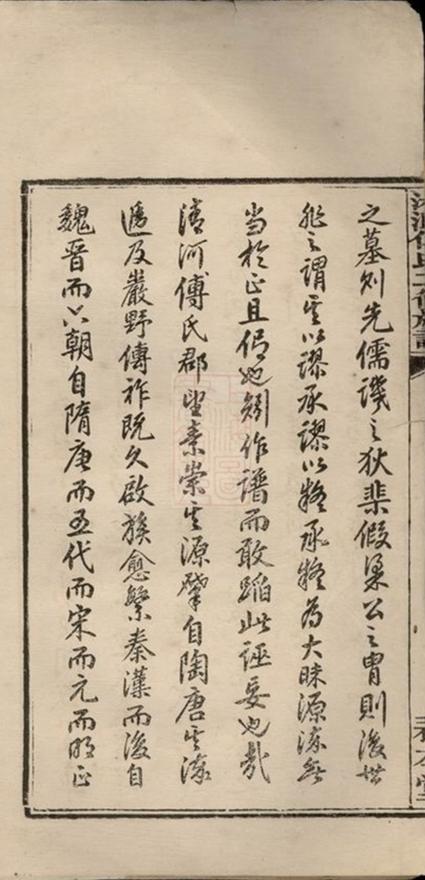 之墓則先儒譏之狄棐假梁公之胄則後世
非之謂其以謬承謬以疑承疑為大昧源流無
當於正且僞也矧作譜而敢蹈此誣妄也哉
清河傅氏郡望素崇其源肇自陶唐其流
遞及巖野傳祚既久啟族愈繁秦漢而後自
魏晉而六朝自隋唐而五代而宋而元而明正